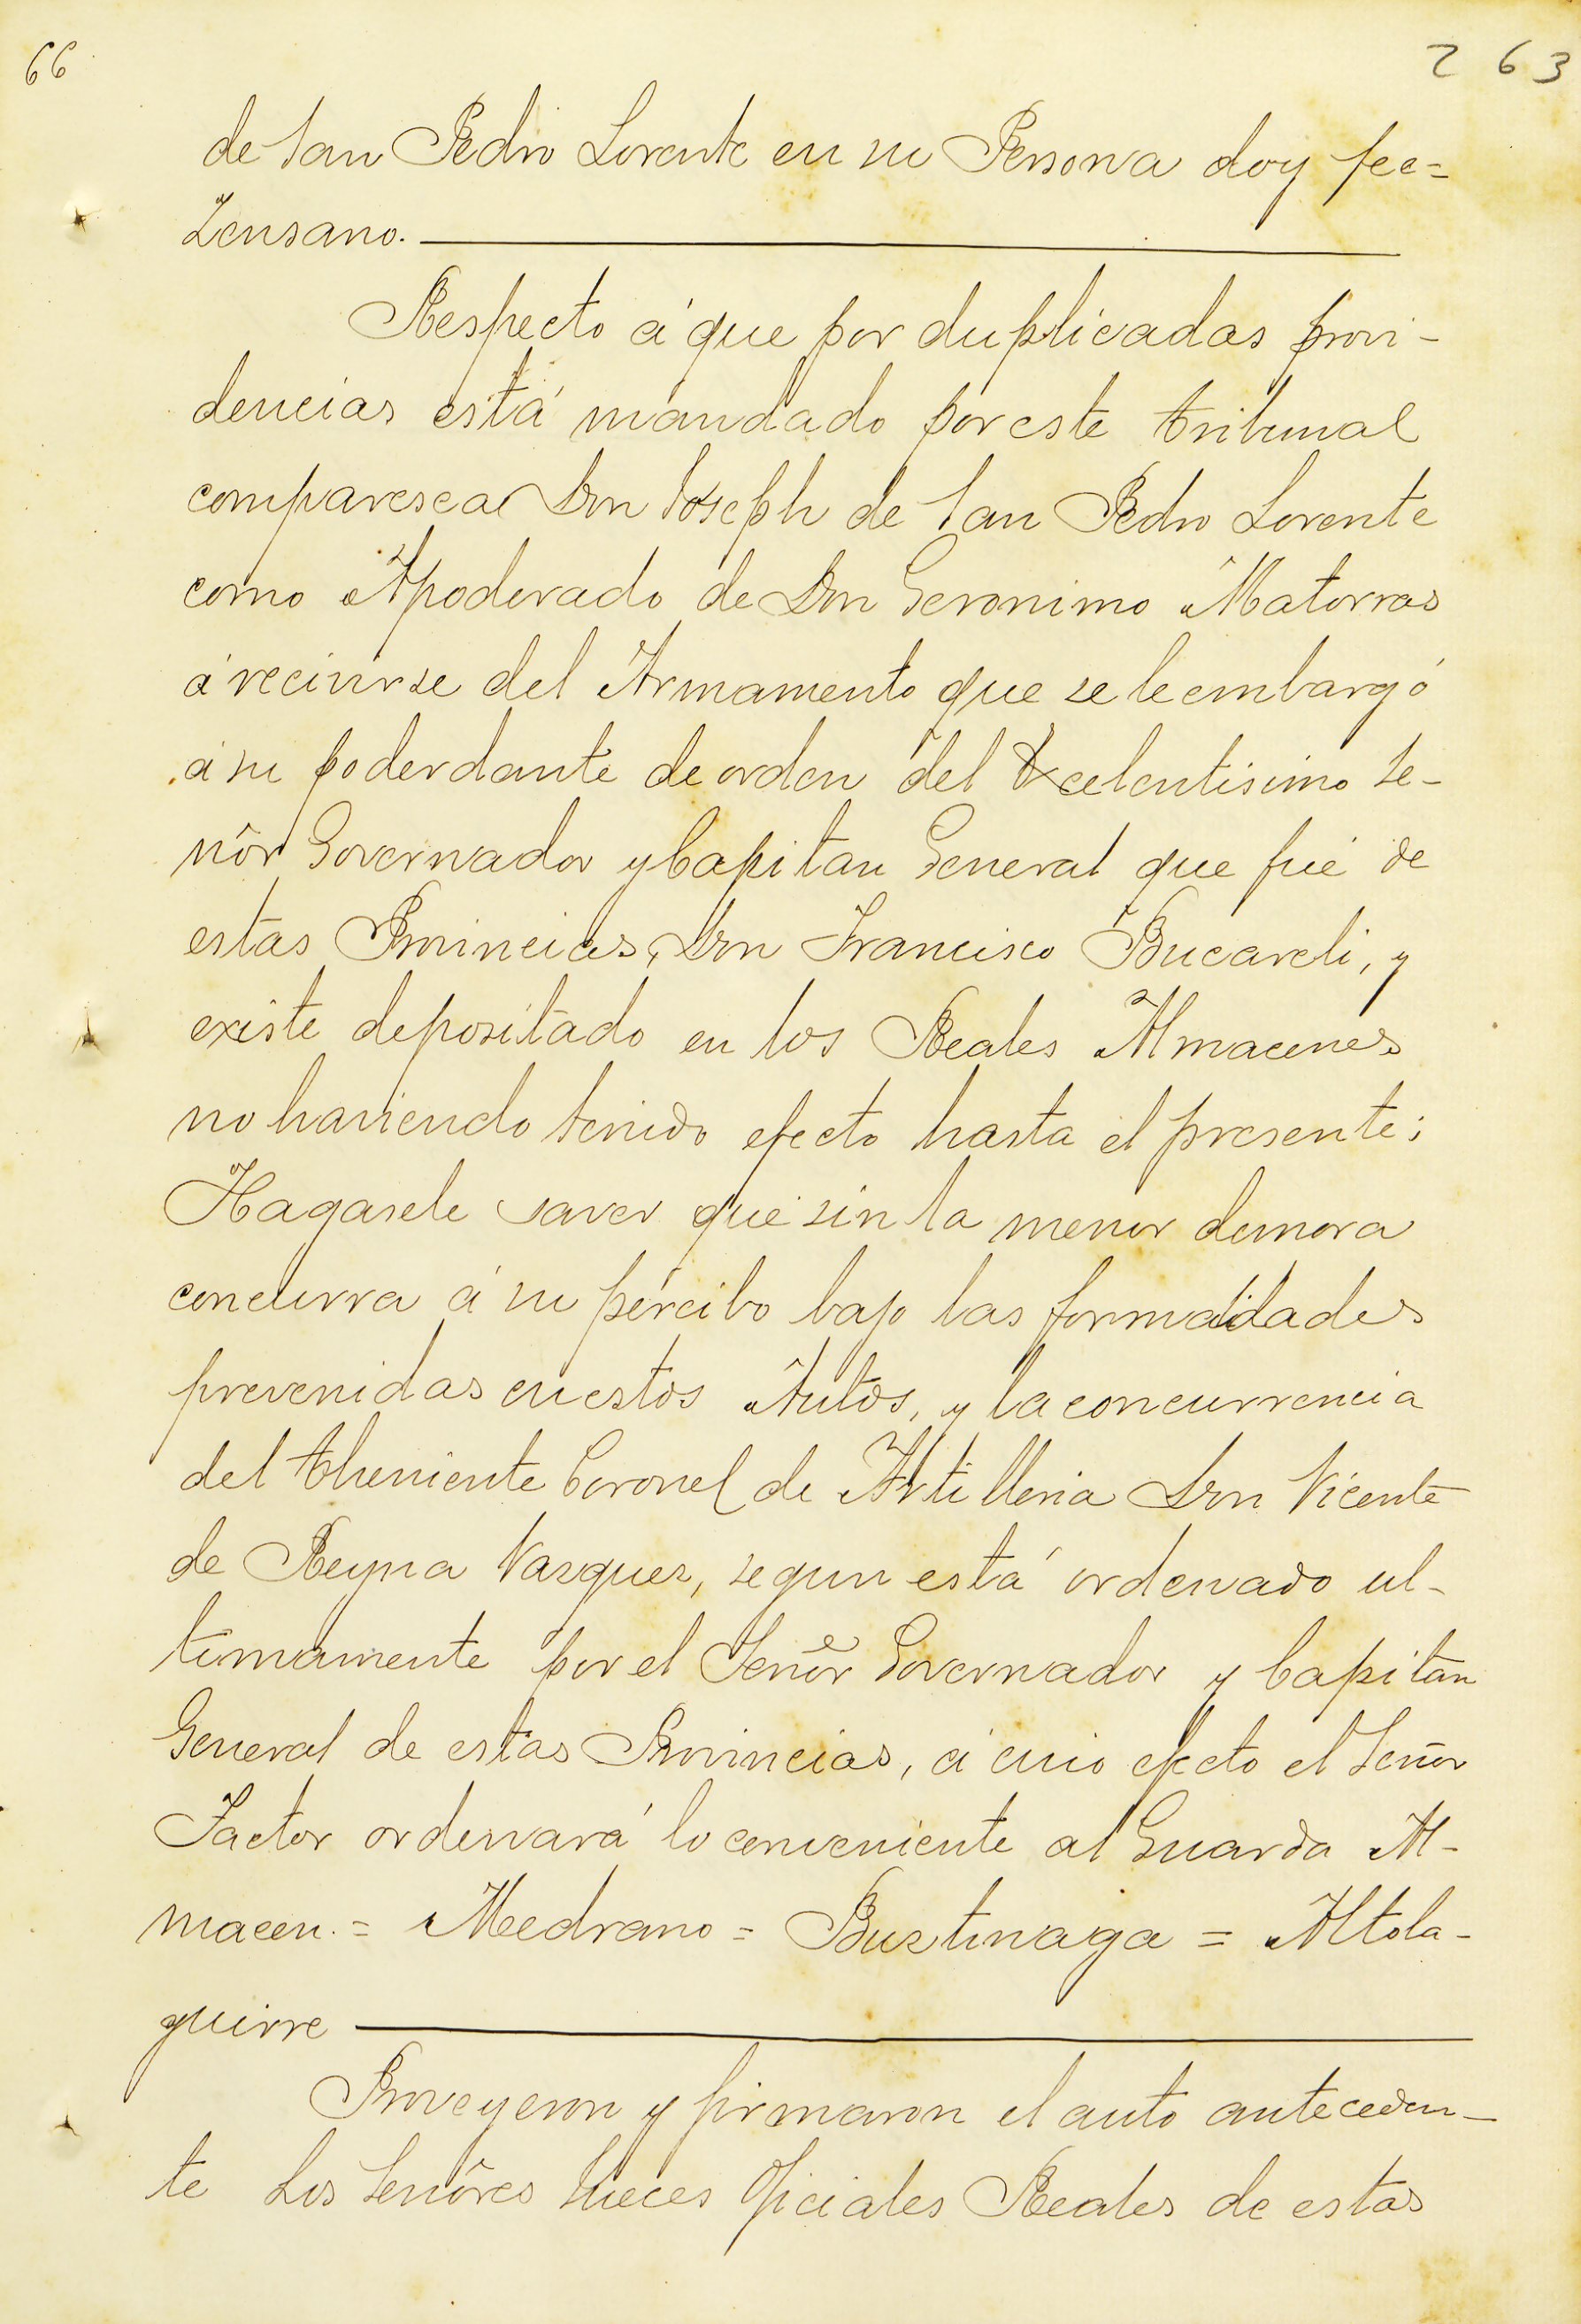 66
263
de San Pedro Lorente en su Persona doy fee=
Zensano.
Respecto á que por duplicadas provi-
dencias está mandado por este tribunal
comparesca Don Joseph de San Pedro Lorente
como Apoderado de Don Geronimo Matorras
á recivirse del Armamento que se le embargó
á su poderdante de orden del Excelentisimo Se-
ñor Governador y Capitan General que fué de
estas Provincias, Don Francisco Bucareli, y
existe depositado en los Reales Almacenes
no haviendo tenido efecto hasta el presente;
Hagasele saver que sin la menor demora
concurra á su percibo bajo las formalidades
prevenidas en estos Autos, y la concurrencia
del Theniente Coronel de Artilleria Don Vicente
de Reyna Vazquez, segun está ordenado ul-
timamente por el Señor Governador y Capitan
General de estas Provincias, á cuio efecto el Señor
Factor ordenará lo conveniente al Guarda Al-
macen.= Medrano = Bustinaga = Altola-
guirre
Proveyeron y firmaron el auto anteceden-
te Los Señores Jueces Oficiales Reales de estas